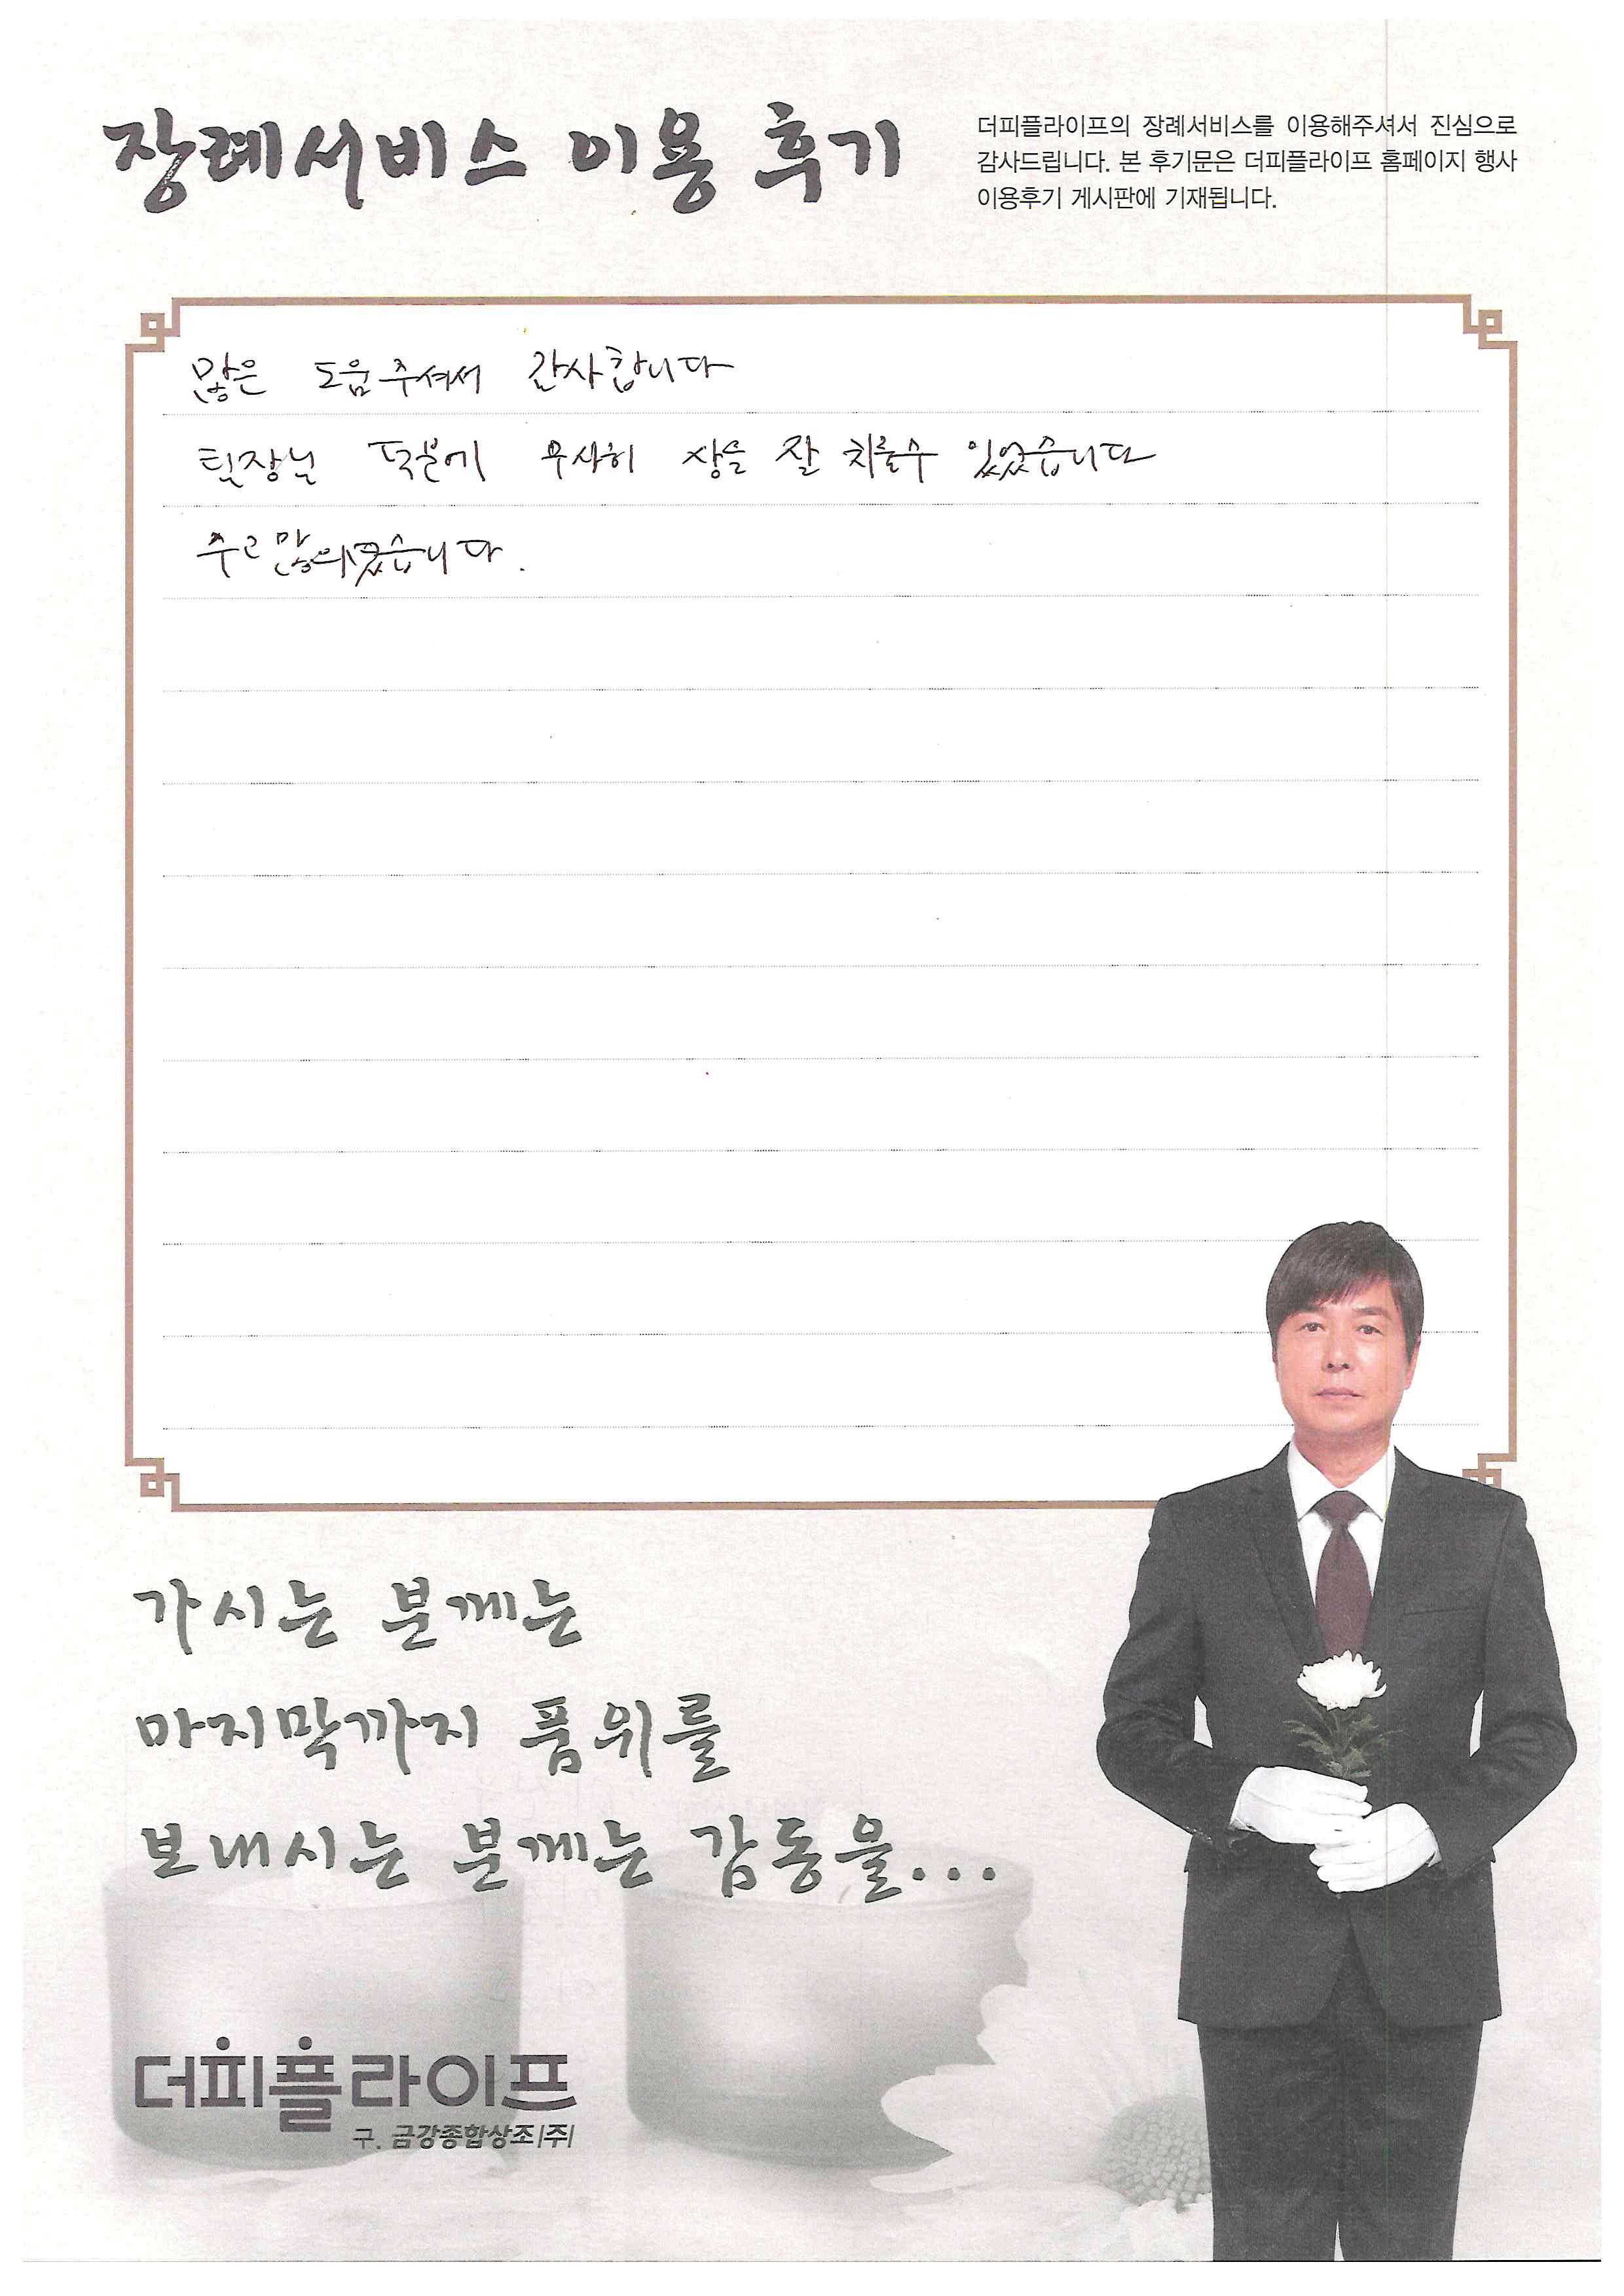 장례서비스 이용 후기
더피플라이프의 장례서비스를 이용해주셔서 진심으로
감사드립니다. 본 후기문은 더피플라이프 홈페이지 행사
이용후기 게시판에 기재됩니다.
많은 도움주셔서 감사합니다
팀장님 덕분에 무사히 상을 잘 치를수 있었습니다
수고많으셨습니다.
가시는 분께는
마지막까지 품위를
보내시는 분께는 감동을...
더피플라이프
구. 금강종합상조|주|